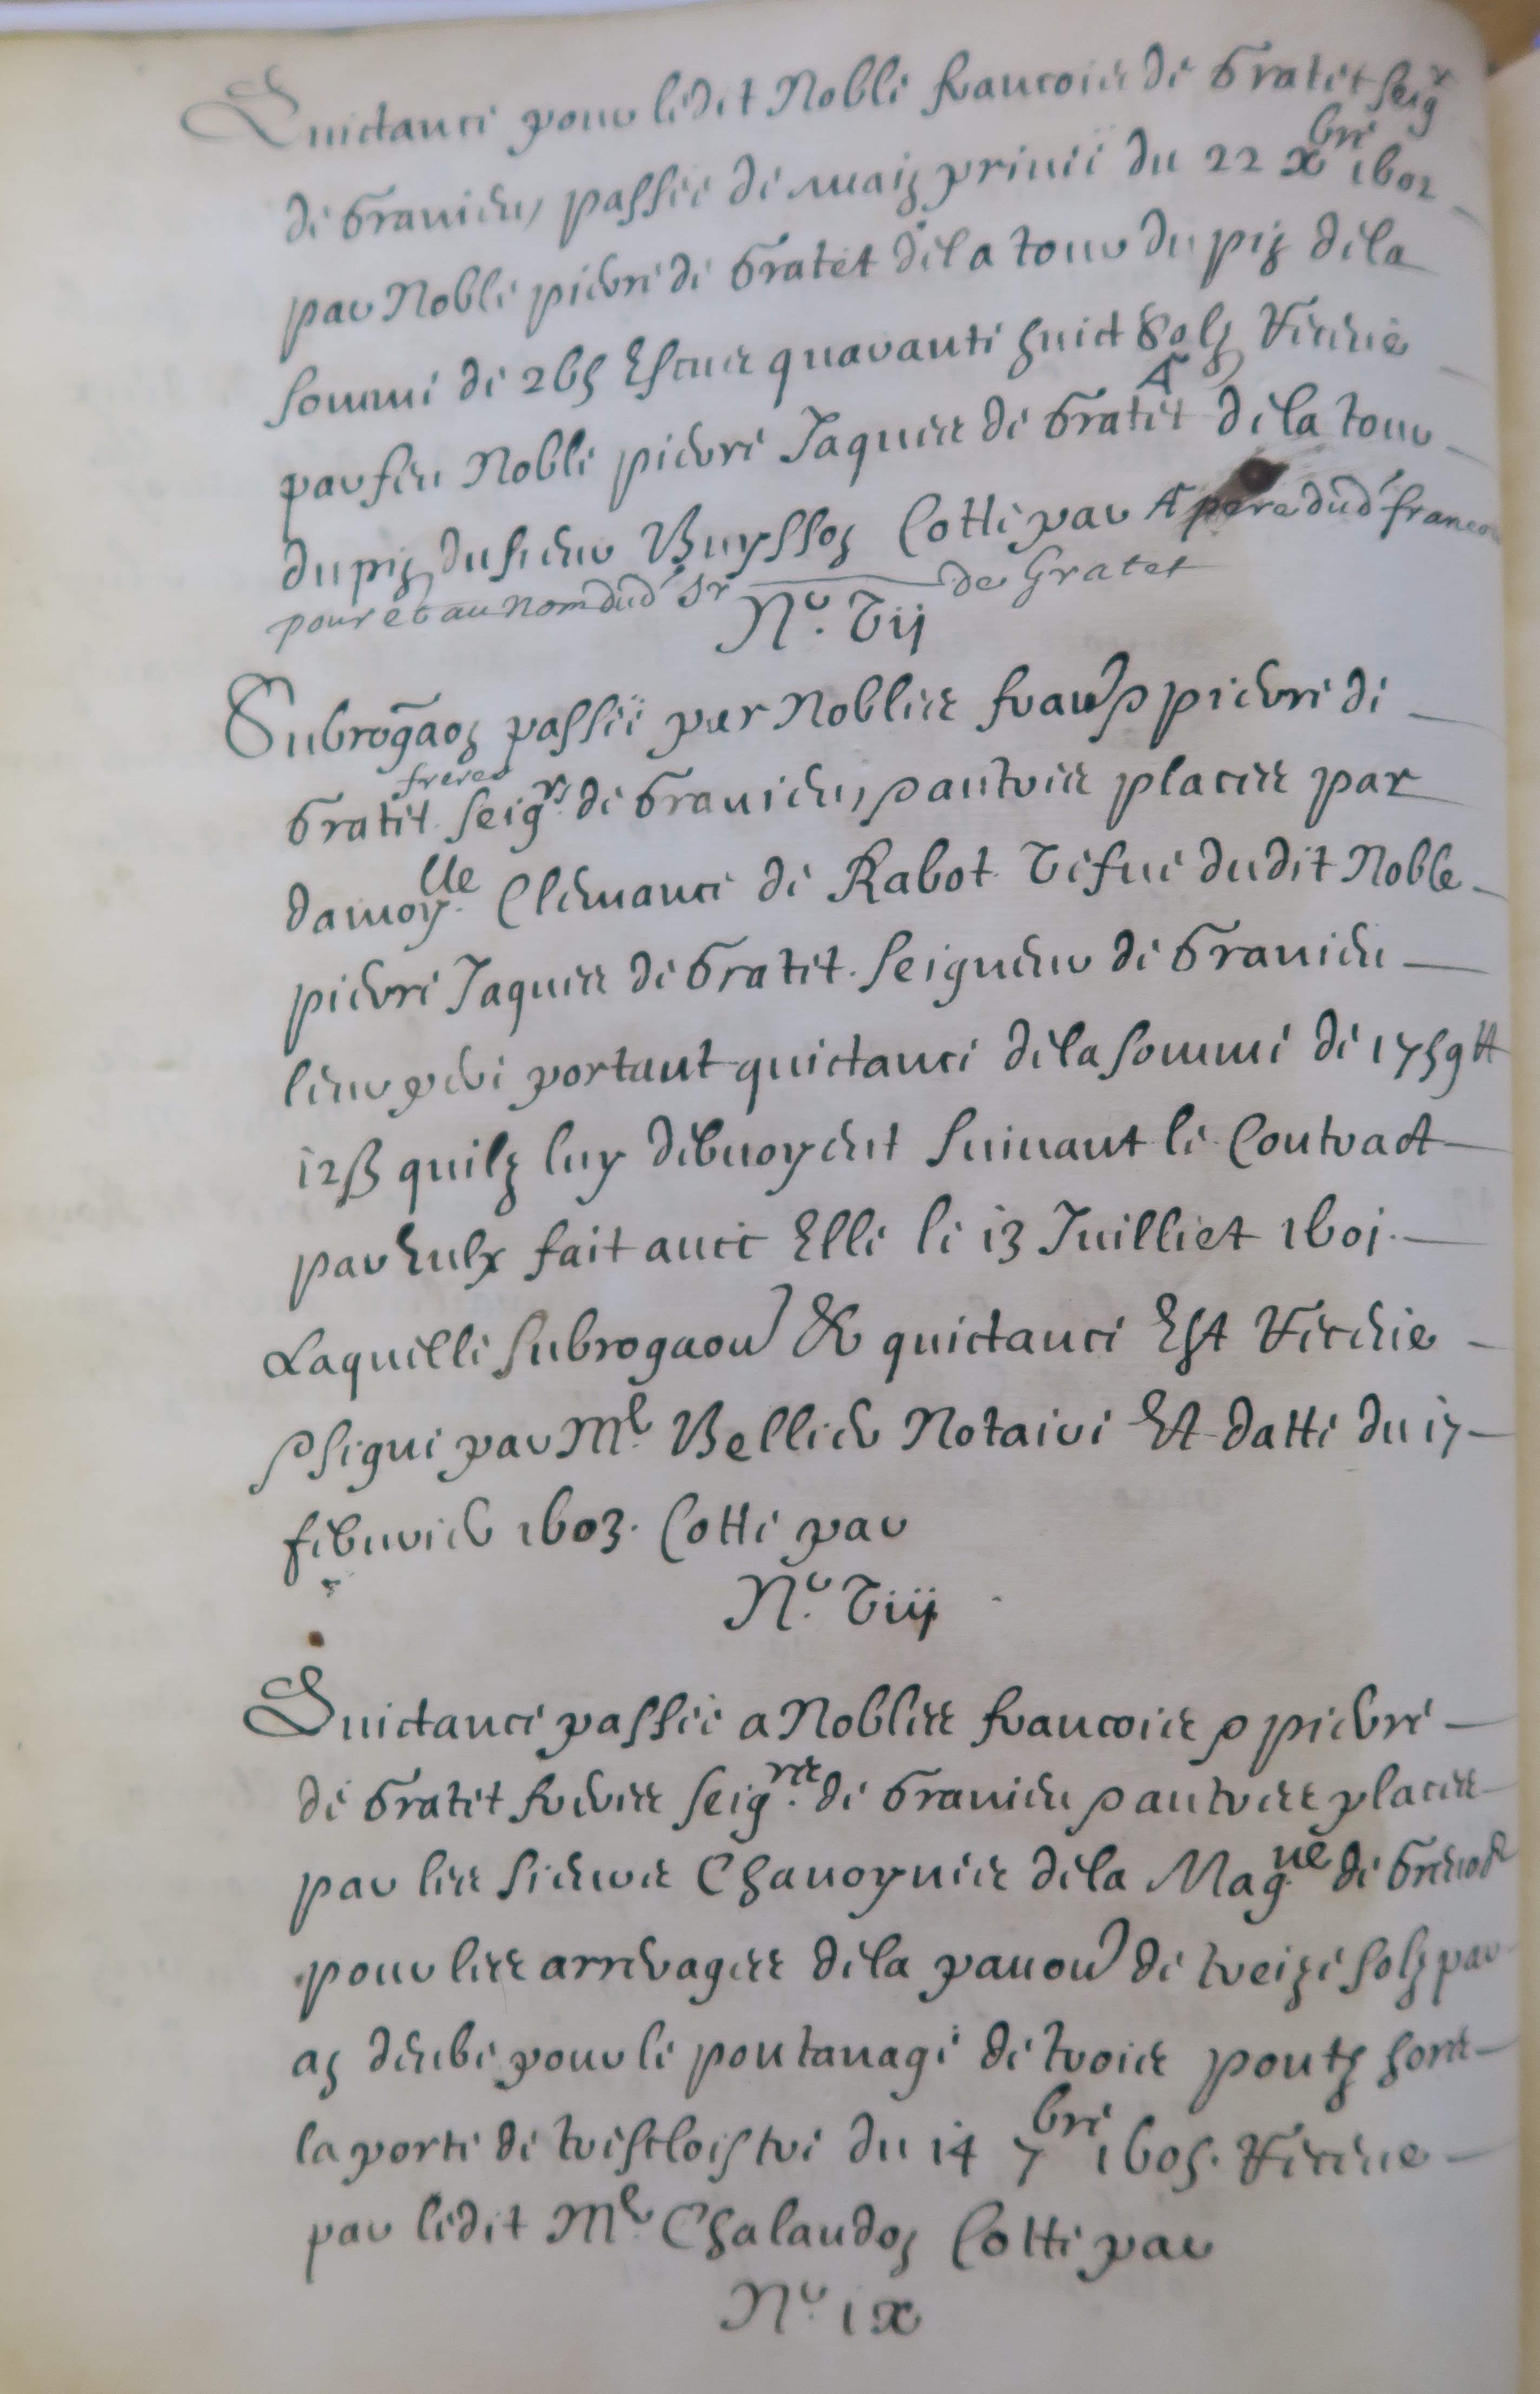 Quictance pour ledit Noble francois de Gratet seigr
de Granieu, passée de main privée du 22 xbre 1602
par Noble pierre de Gratet de la tour du pin de la
somme de 265 Escus quarante huict solz Receue
par feu Noble pierre Jaques de Gratet A de la tour
du pin du sieur Buysson Cotté par A pere dud' francois
pour et au nom dud' Sr de Gratet
No. Vij
Subrogaon passée par Nobles francs & pierre de
Gratet freres seigrs de Granieu, & autres places par
damoylle Clemance de Rabot vefue dudit Noble
pierre Jaques de Gratet seigneur de Granieu
leur pere portant quictance de la somme de 1759 tt
12 ß quilz luy debuoyent suiuant le Contract
par Eulx fait auec Elle le 13 Juilliet 1601.
Laquelle subrogaon & quictance Est Receue
& signe par Me Bellier Notaire Et datte du 17
feburier 1603. Cotté par
No. Viij
Quictance passée a Nobles francois & pierre
de Gratet freres seigrs de Granieu & autres places
par les sieurs Chanoynes de la Magne de Grenoble
pour les arrerages de la panon de treize solz par
an deube pour le pontanage de trois pontz hors
la porte de trescloistre du 14 7bre 1605. Receue
par ledit Me Chalandon Cotté par
No. ix